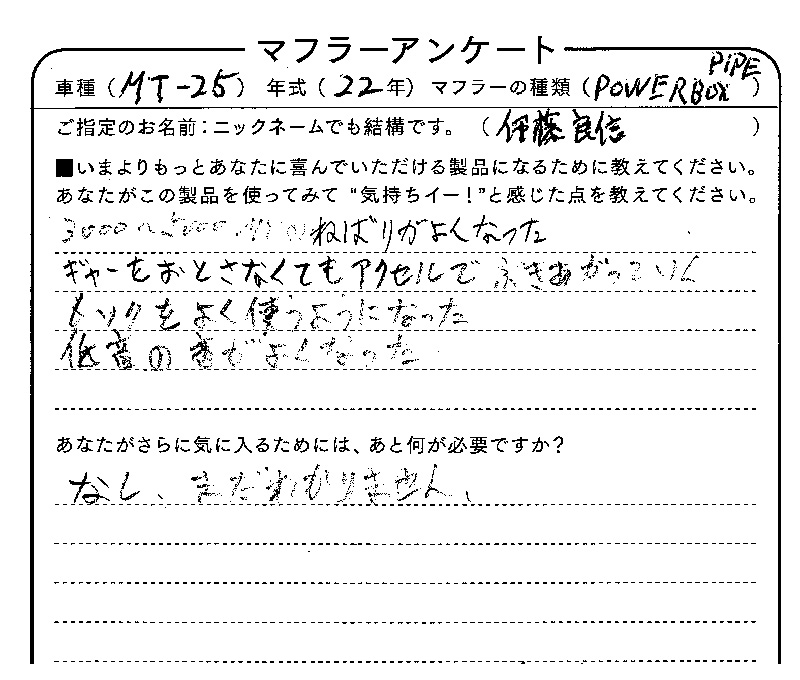 マフラーアンケート
車種（MT-25） 年式（22年） マフラーの種類（POWERBOX PIPE）
ご指定のお名前：ニックネームでも結構です。（伊藤良信）
■いまよりもっとあなたに喜んでいただける製品になるために教えてください。
あなたがこの製品を使ってみて“気持ちイー！”と感じた点を教えてください。
3000〜5000 ねばりがよくなった
ギャーをおとさなくてもアクセルでふきあがっていく
メックをよく使うようになった
低音の音がよくなった
あなたがさらに気に入るためには、あと何が必要ですか？
なし、まだわかりません、